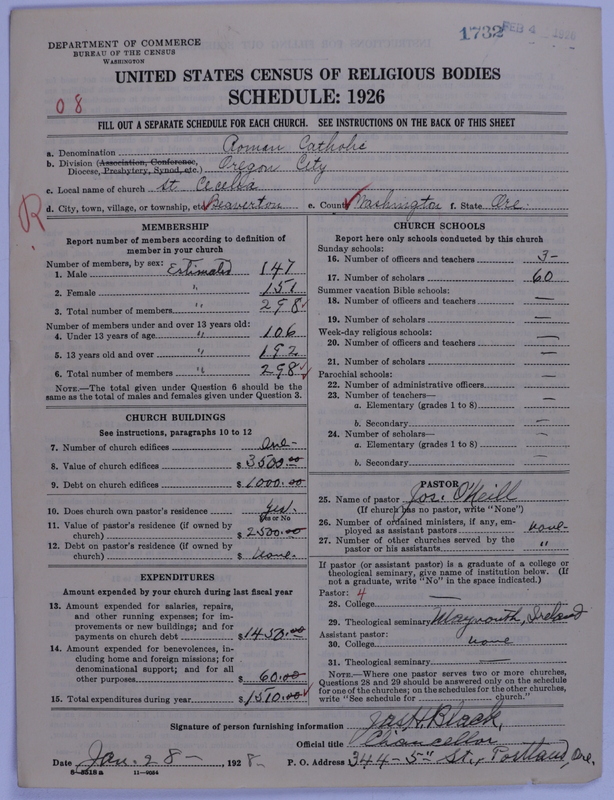 1732 FEB 4 1928
DEPARTMENT OF COMMERCE
BUREAU OF THE CENSUS
WASHINGTON
UNITED STATES CENSUS OF RELIGIOUS BODIES
SCHEDULE: 1926
08
FILL OUT A SEPARATE SCHEDULE FOR EACH CHURCH. SEE INSTRUCTIONS ON THE BACK OF THIS SHEET
a. Denomination Roman Catholic
b. Division (Association, Conference, Diocese, Presbytery, Synod, etc.) Oregon City
c. Local name of church St. Cecelia
R
d. City, town, village, or township, etc. Beaverton e. County Washington f. State Ore.
MEMBERSHIP
Report number of members according to definition of
member in your church
Number of members, by sex:
1. Male Estimated 147
2. Female " 151
3. Total number of members " 298
Number of members under and over 13 years old:
4. Under 13 years of age " 106
5. 13 years old and over " 192
6. Total number of members " 298
NOTE.—The total given under Question 6 should be the
same as the total of males and females given under Question 3.
CHURCH BUILDINGS
See instructions, paragraphs 10 to 12
7. Number of church edifices One-
8. Value of church edifices $ 3500.00
9. Debt on church edifices $ 1000.00
10. Does church own pastor's residence Yes.
Yes or No
11. Value of pastor's residence (if owned by
church) $ 2500.00
12. Debt on pastor's residence (if owned by
church) $ None.
EXPENDITURES
Amount expended by your church during last fiscal year
13. Amount expended for salaries, repairs,
and other running expenses; for im-
provements or new buildings; and for
payments on church debt $ 1450.00
14. Amount expended for benevolences, in-
cluding home and foreign missions; for
denominational support; and for all
other purposes $ 60.00
15. Total expenditures during year $ 1510.00
CHURCH SCHOOLS
Report here only schools conducted by this church
Sunday schools:
16. Number of officers and teachers 3-
17. Number of scholars 60
Summer vacation Bible schools:
18. Number of officers and teachers —
19. Number of scholars —
Week-day religious schools:
20. Number of officers and teachers —
21. Number of scholars —
Parochial schools:
22. Number of administrative officers —
23. Number of teachers—
a. Elementary (grades 1 to 8) —
b. Secondary —
24. Number of scholars—
a. Elementary (grades 1 to 8) —
b. Secondary —
PASTOR
25. Name of pastor Jos. O'Neill
(If church has no pastor, write "None")
26. Number of ordained ministers, if any, em-
ployed as assistant pastors none
27. Number of other churches served by the
pastor or his assistants "
If pastor (or assistant pastor) is a graduate of a college or
theological seminary, give name of institution below. (If
not a graduate, write "No" in the space indicated.)
Pastor: 4
28. College —
29. Theological seminary Maynooth, Ireland
Assistant pastor:
30. College none
31. Theological seminary —
NOTE.—Where one pastor serves two or more churches,
Questions 28 and 29 should be answered only on the schedule
for one of the churches; on the schedules for the other churches,
write "See schedule for church."
Signature of person furnishing information Jas. H. Black,
Official title Chancellor
Date Jan. 28- 1928- P. O. Address 344-5th St., Portland, Ore.
8—5518 a 11—9064